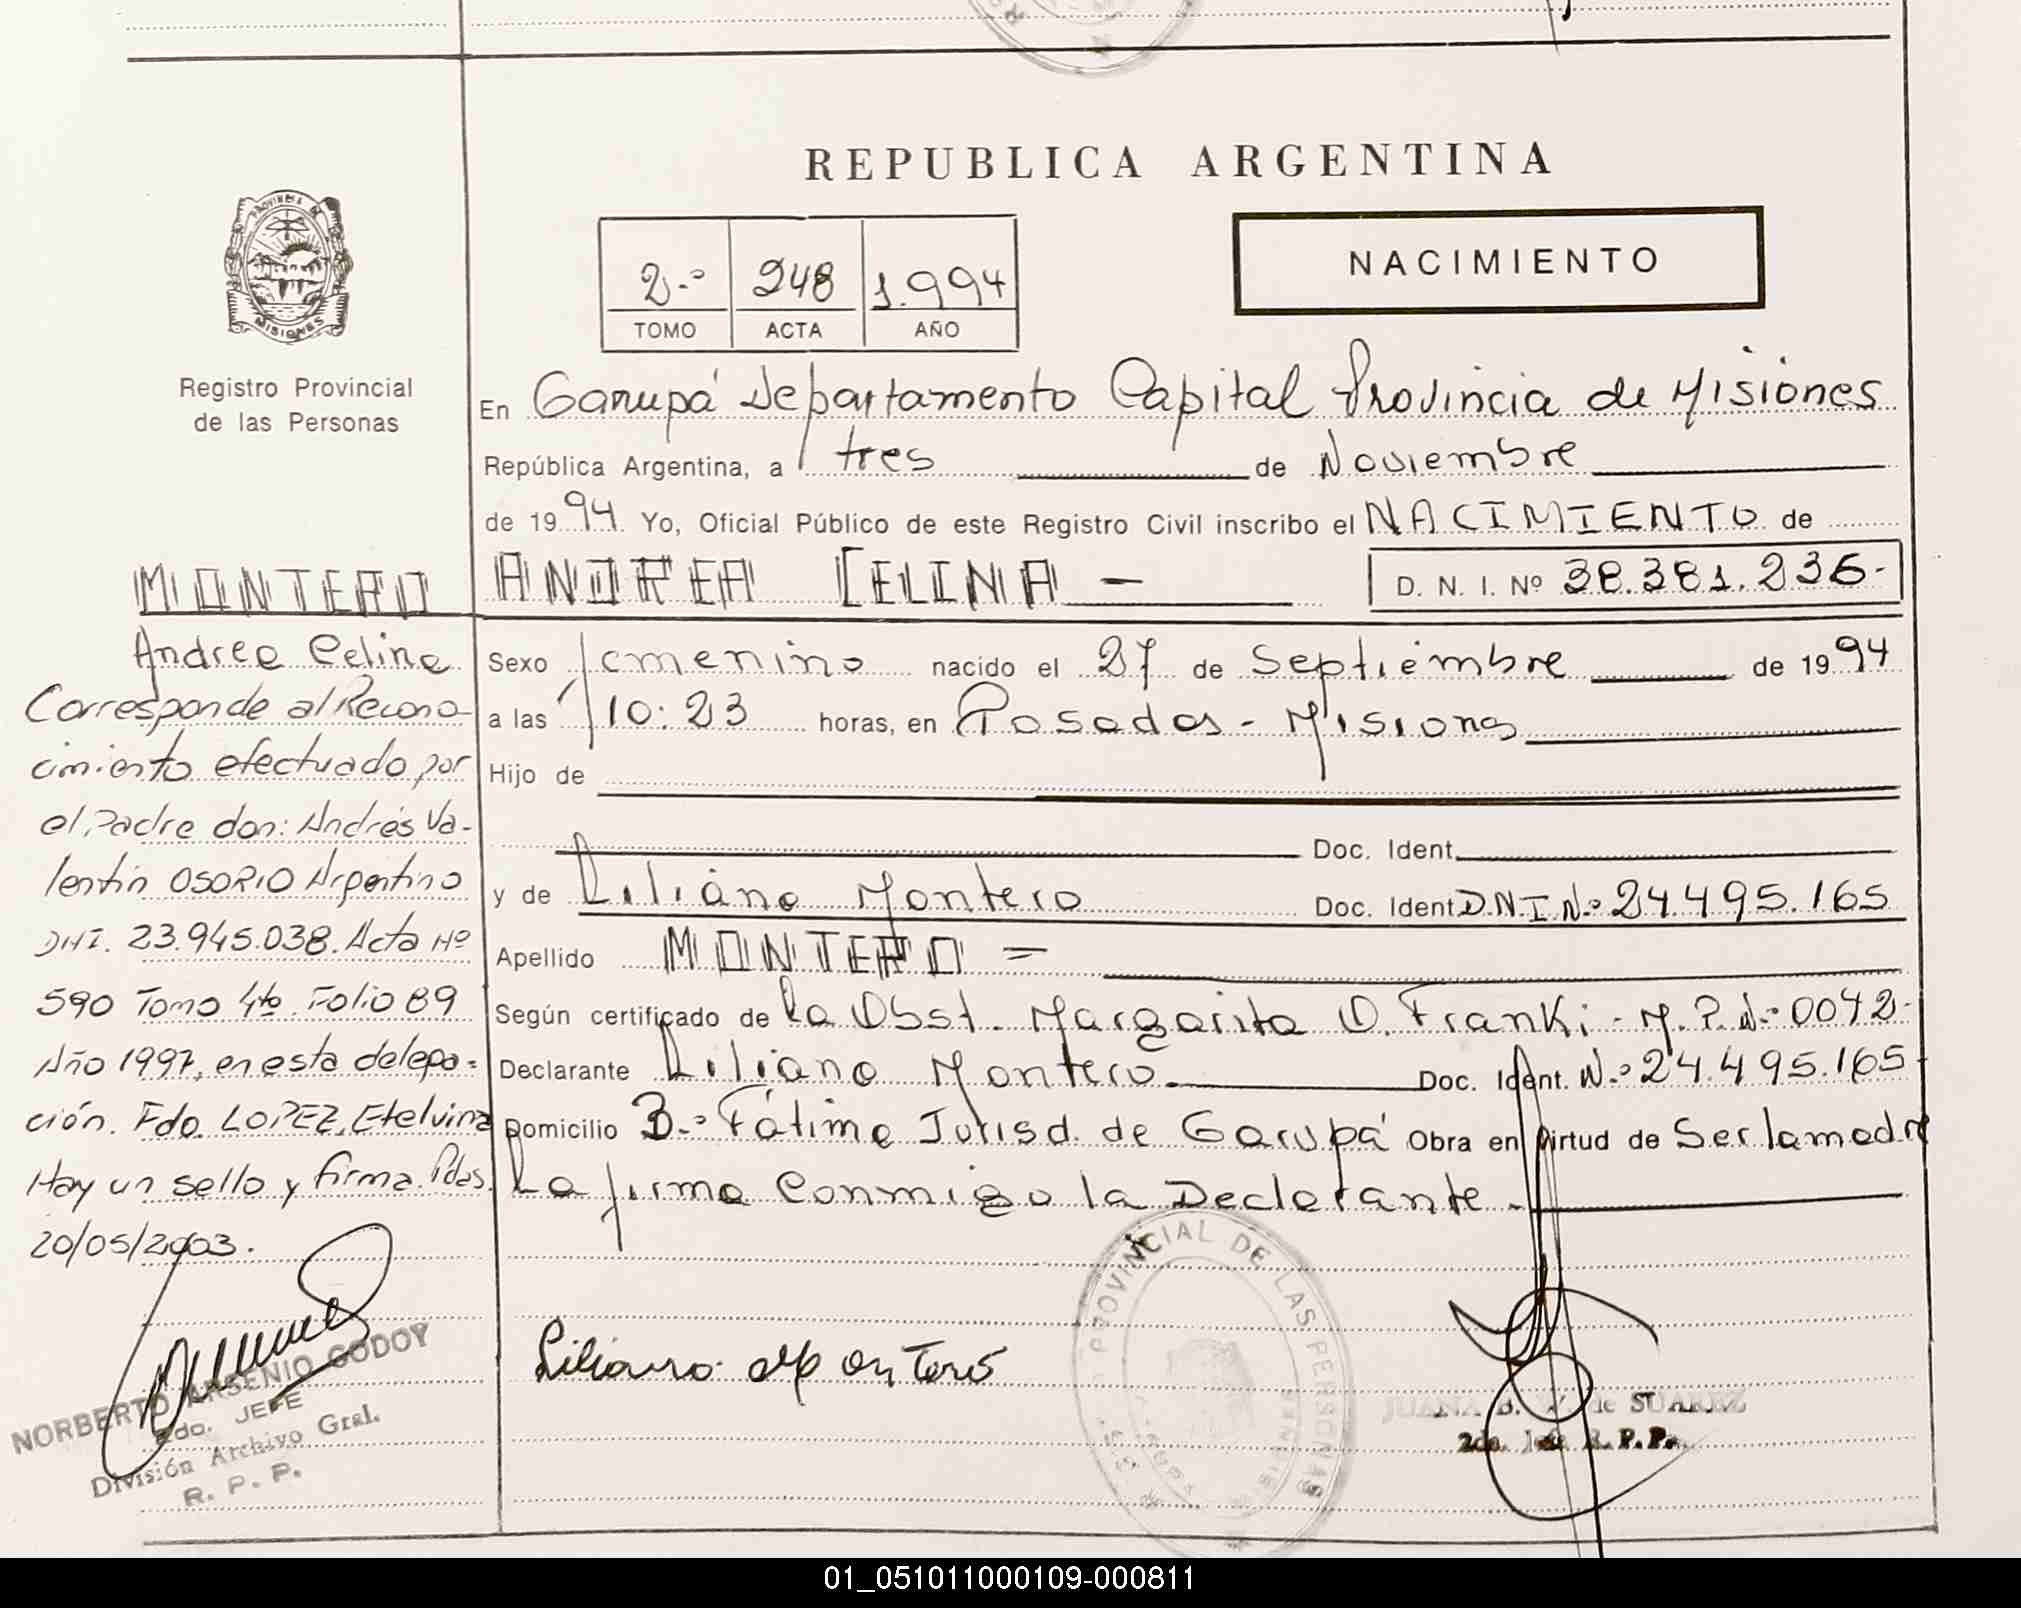 REPUBLICA ARGENTINA
NACIMIENTO
2.º 248 1.994
TOMO ACTA AÑO
PROVINCIA DE
MISIONES
Registro Provincial
de las Personas
En Garupá Departamento Capital Provincia de Misiones
República Argentina, a tres de Noviembre
de 1994 Yo, Oficial Público de este Registro Civil inscribo el NACIMIENTO de
MONTERO ANDREA CELINA - D. N. I. Nº 38.381.236-
Sexo femenino nacido el 27 de Septiembre de 1994
a las 10:23 horas, en Posadas - Misiones
Hijo de
Doc. Ident.
y de Liliana Montero Doc. Ident D.N.I.N.º 24.495.165
Apellido MONTERO =
Según certificado de la Obst. Margarita O. Franki - M.P.N.º 0042-
Declarante Liliana Montero. Doc. Ident. N.º 24.495.165
Domicilio B.º Fátima Jurisd. de Garupá Obra en virtud de Ser la madre
La firma Conmigo la Declarante.
Andrea Celina
Corresponde al Recono-
cimiento efectuado por
el Padre don: Andrés Va-
lentín OSORIO Argentino
DNI. 23.945.038. Acta Nº
590 Tomo 4to. Folio 89
Año 1997, en esta delega=
ción. Fdo. LOPEZ, Etelvina
Hay un sello y firma. Pdas.
20/05/2003.
NORBERTO ARSENIO GODOY
2do. JEFE
División Archivo Gral.
R. P. P.
Liliana Montero
PROVINCIAL DE LAS PERSONAS
JUANA B. V. de SUAREZ
2da. Jefe R. P. P.
01_051011000109-000811